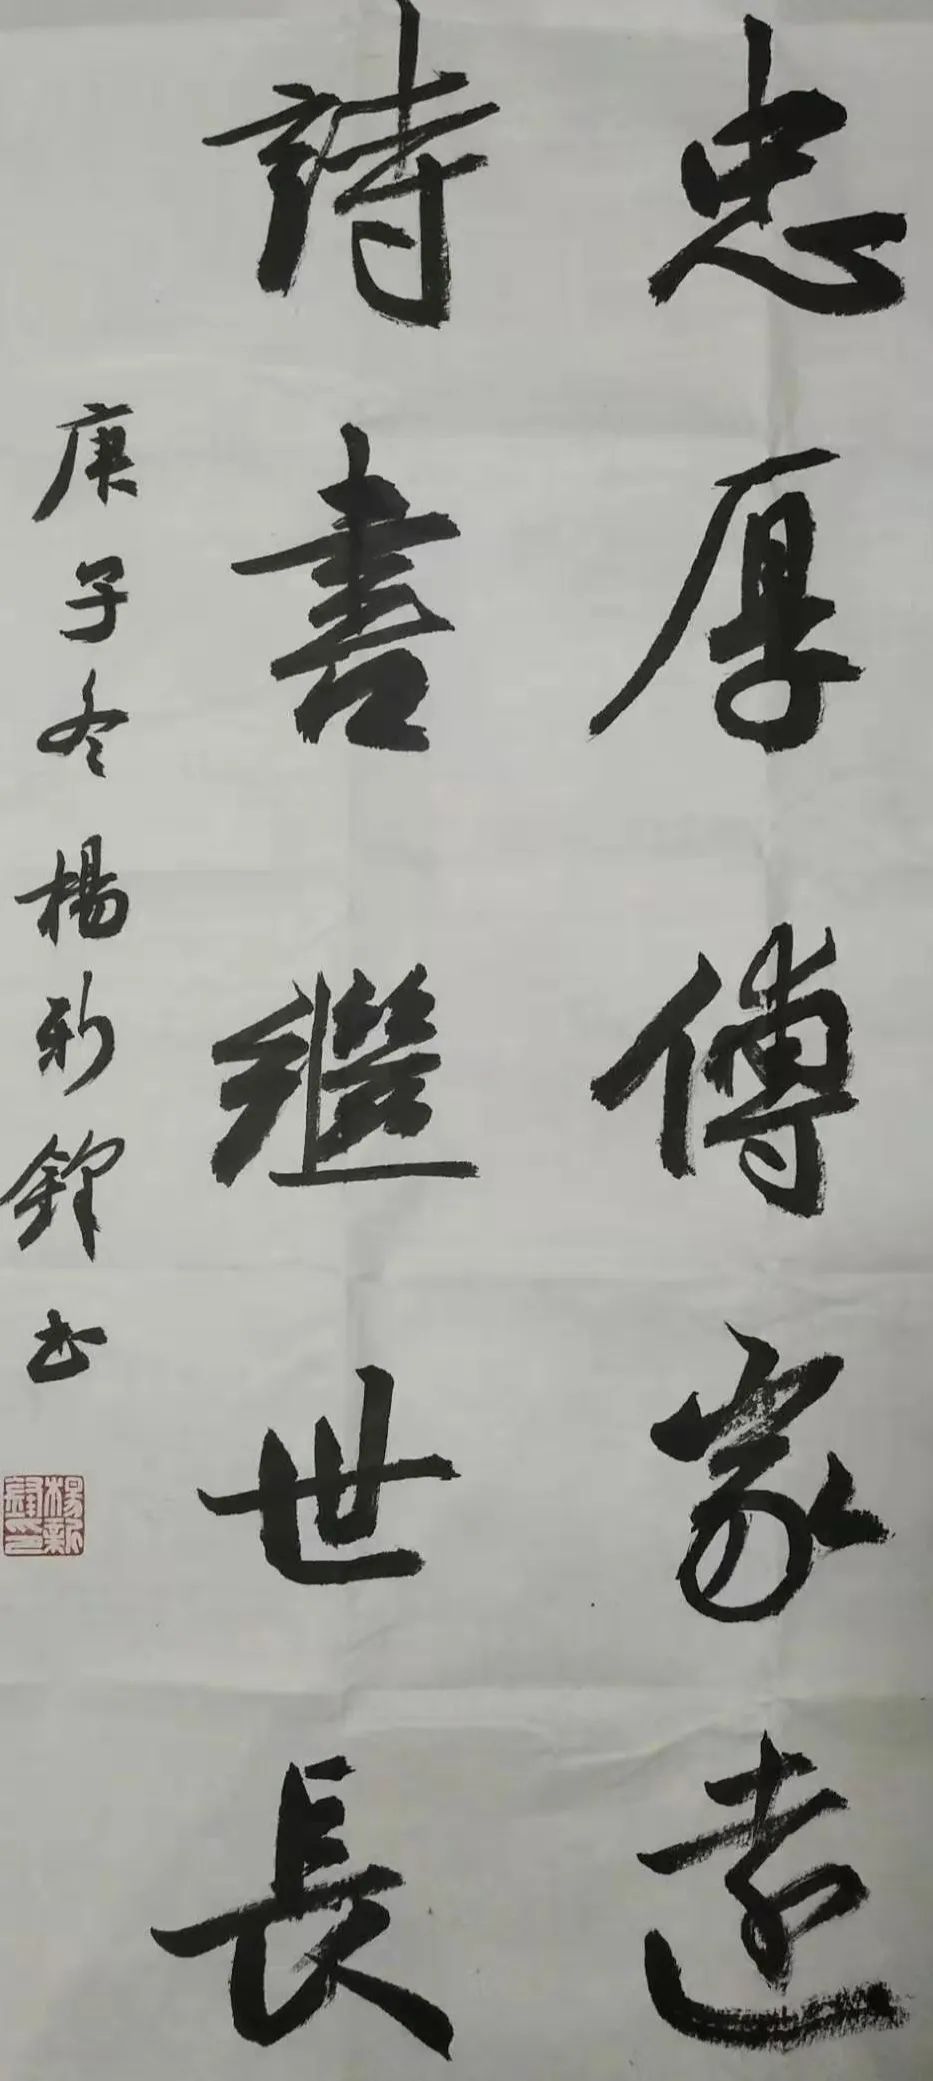 忠厚傳家遠
詩書繼世長
庚子冬楊新鋒书
楊新
鋒印